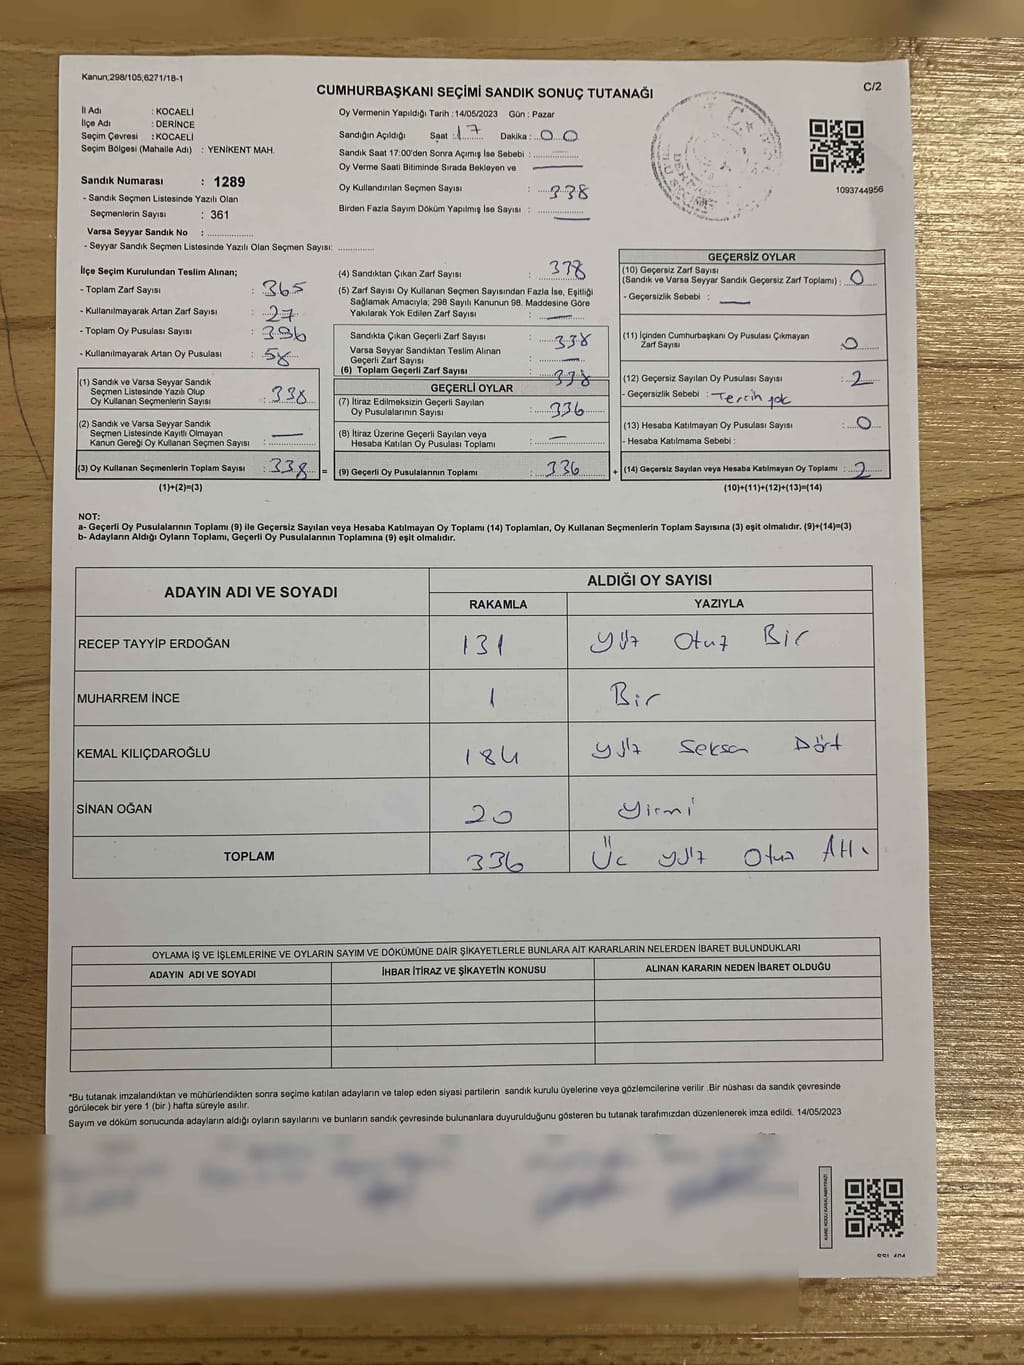 Kanun;298/105;6271/18-1
CUMHURBAŞKANI SEÇİMİ SANDIK SONUÇ TUTANAĞI
C/2
İl Adı : KOCAELİ
İlçe Adı : DERİNCE
Seçim Çevresi : KOCAELİ
Seçim Bölgesi (Mahalle Adı) : YENİKENT MAH.
Sandık Numarası : 1289
- Sandık Seçmen Listesinde Yazılı Olan
Seçmenlerin Sayısı : 361
Varsa Seyyar Sandık No :
- Seyyar Sandık Seçmen Listesinde Yazılı Olan Seçmen Sayısı:
Oy Vermenin Yapıldığı Tarih :14/05/2023 Gün : Pazar
Sandığın Açıldığı Saat : 17 Dakika : 00
Sandık Saat 17:00'den Sonra Açımış İse Sebebi :
Oy Verme Saati Bitiminde Sırada Bekleyen ve
Oy Kullandırılan Seçmen Sayısı : 338
Birden Fazla Sayım Döküm Yapılmış İse Sayısı : —
1093744956
İlçe Seçim Kurulundan Teslim Alınan;
- Toplam Zarf Sayısı : 365
- Kullanılmayarak Artan Zarf Sayısı : 27
- Toplam Oy Pusulası Sayısı : 396
- Kullanılmayarak Artan Oy Pusulası : 58
(1) Sandık ve Varsa Seyyar Sandık
Seçmen Listesinde Yazılı Olup
Oy Kullanan Seçmenlerin Sayısı : 338
(2) Sandık ve Varsa Seyyar Sandık
Seçmen Listesinde Kayıtlı Olmayan
Kanun Gereği Oy Kullanan Seçmen Sayısı : —
(3) Oy Kullanan Seçmenlerin Toplam Sayısı : 338
(1)+(2)=(3)
(4) Sandıktan Çıkan Zarf Sayısı : 338
(5) Zarf Sayısı Oy Kullanan Seçmen Sayısından Fazla İse, Eşitliği
Sağlamak Amacıyla; 298 Sayılı Kanunun 98. Maddesine Göre
Yakılarak Yok Edilen Zarf Sayısı : —
Sandıkta Çıkan Geçerli Zarf Sayısı : 338
Varsa Seyyar Sandıktan Teslim Alınan
Geçerli Zarf Sayısı : —
(6) Toplam Geçerli Zarf Sayısı : 338
GEÇERLİ OYLAR
(7) İtiraz Edilmeksizin Geçerli Sayılan
Oy Pusulalarının Sayısı : 336
(8) İtiraz Üzerine Geçerli Sayılan veya
Hesaba Katılan Oy Pusulası Toplamı : —
= (9) Geçerli Oy Pusulalarının Toplamı : 336
GEÇERSİZ OYLAR
(10) Geçersiz Zarf Sayısı
(Sandık ve Varsa Seyyar Sandık Geçersiz Zarf Toplamı) : 0
- Geçersizlik Sebebi : —
(11) İçinden Cumhurbaşkanı Oy Pusulası Çıkmayan
Zarf Sayısı : 0
(12) Geçersiz Sayılan Oy Pusulası Sayısı : 2
- Geçersizlik Sebebi : Tercih yok
(13) Hesaba Katılmayan Oy Pusulası Sayısı : 0
- Hesaba Katılmama Sebebi :
+ (14) Geçersiz Sayılan veya Hesaba Katılmayan Oy Toplamı : 2
(10)+(11)+(12)+(13)=(14)
NOT:
a- Geçerli Oy Pusulalarının Toplamı (9) ile Geçersiz Sayılan veya Hesaba Katılmayan Oy Toplamı (14) Toplamları, Oy Kullanan Seçmenlerin Toplam Sayısına (3) eşit olmalıdır. (9)+(14)=(3)
b- Adayların Aldığı Oyların Toplamı, Geçerli Oy Pusulalarının Toplamına (9) eşit olmalıdır.
ADAYIN ADI VE SOYADI
ALDIĞI OY SAYISI
RAKAMLA YAZIYLA
RECEP TAYYİP ERDOĞAN 131 Yüz Otuz Bir
MUHARREM İNCE 1 Bir
KEMAL KILIÇDAROĞLU 184 Yüz Seksen Dört
SİNAN OĞAN 20 Yirmi
TOPLAM 336 Üç yüz Otuz Altı
OYLAMA İŞ VE İŞLEMLERİNE VE OYLARIN SAYIM VE DÖKÜMÜNE DAİR ŞİKAYETLERLE BUNLARA AİT KARARLARIN NELERDEN İBARET BULUNDUKLARI
ADAYIN ADI VE SOYADI İHBAR İTİRAZ VE ŞİKAYETİN KONUSU ALINAN KARARIN NEDEN İBARET OLDUĞU
*Bu tutanak imzalandıktan ve mühürlendikten sonra seçime katılan adayların ve talep eden siyasi partilerin sandık kurulu üyelerine veya gözlemcilerine verilir .Bir nüshası da sandık çevresinde
görülecek bir yere 1 (bir ) hafta süreyle asılır.
Sayım ve döküm sonucunda adayların aldığı oyların sayılarını ve bunların sandık çevresinde bulunanlara duyurulduğunu gösteren bu tutanak tarafımızdan düzenlenerek imza edildi. 14/05/2023